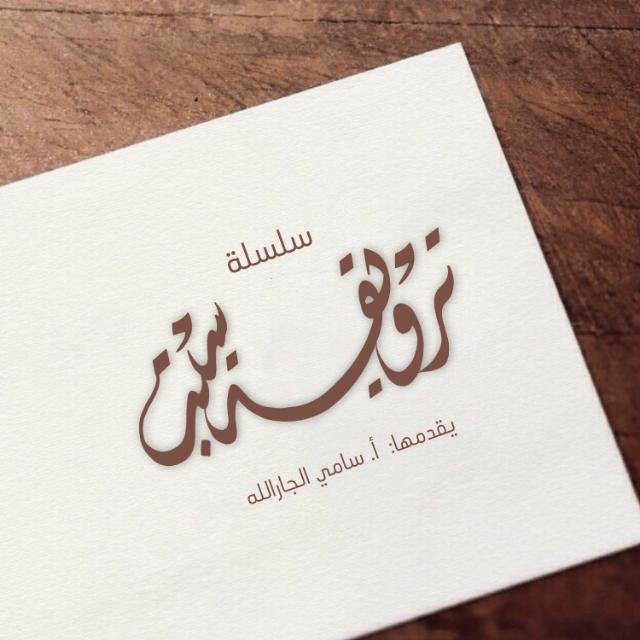 سلسلة
ترويقة
يقدمها: أ. سامي الجارالله